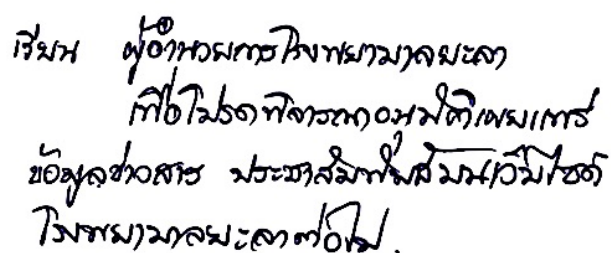 เรียน ผู้อำนวยการโรงพยาบาลยะลา
เพื่อโปรดพิจารณาอนุมัติเผยแพร่
ข้อมูลข่าวสาร ประชาสัมพันธ์บนเว็บไซต์
โรงพยาบาลยะลาต่อไป.